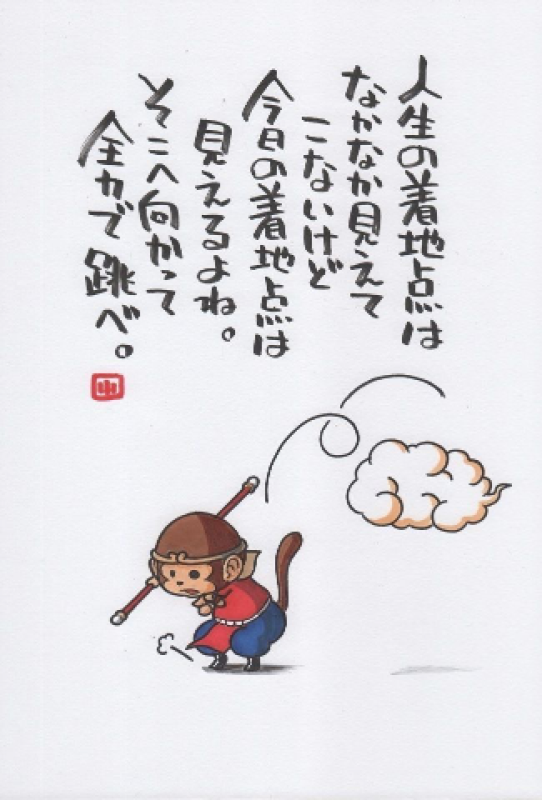 人生の着地点は
なかなか見えて
こないけど
今日の着地点は
見えるよね。
そこへ向かって
全力で跳べ。